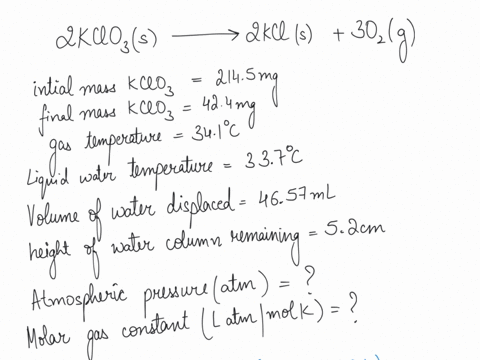 2KClO₃(s) ⟶ 2KCl(s) + 3O₂(g)
intial mass KClO₃ = 214.5mg
final mass KClO₃ = 42.4mg
gas temperature = 34.1°C
Liquid water temperature = 33.7°C
Volume of water displaced = 46.57mL
height of water column remaining = 5.2cm
Atmospheric pressure (atm) = ?
Molar gas constant (L atm/mol K) = ?